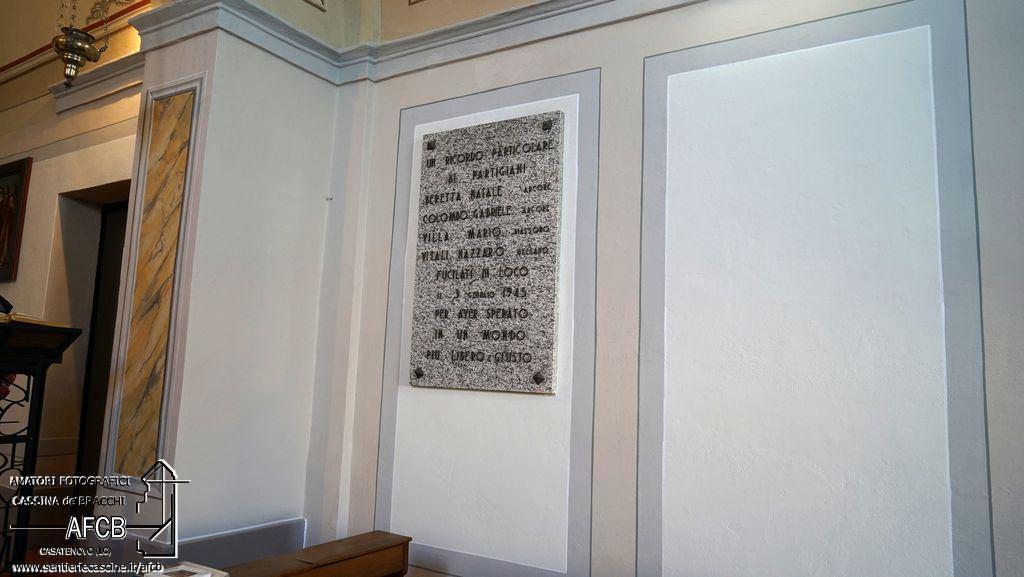 UN RICORDO PARTICOLARE
AI PARTIGIANI
BERETTA NATALE ARCORE
COLOMBO GABRIELE ARCORE
VILLA MARIO BIASSONO
VITALI NAZZARO BELLANO
FUCILATI IN LOCO
IL 3 GENNAIO 1945
PER AVER SPERATO
IN UN MONDO
PIU LIBERO E GIUSTO
AMATORI FOTOGRAFICI
CASSINA de'BRACCHI
AFCB
CASATENOVO (LC)
www.sentieriecascine.it/afcb